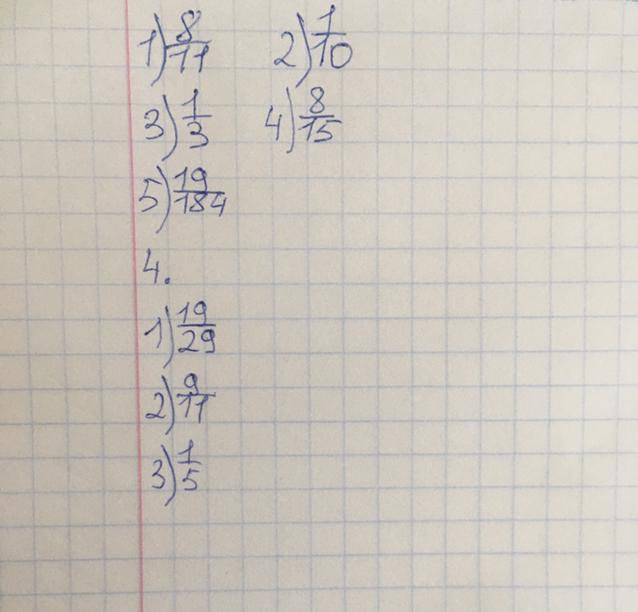 1) 8/11 2) 1/10
3) 1/3 4) 8/15
5) 19/184
4.
1) 19/29
2) 9/11
3) 1/5